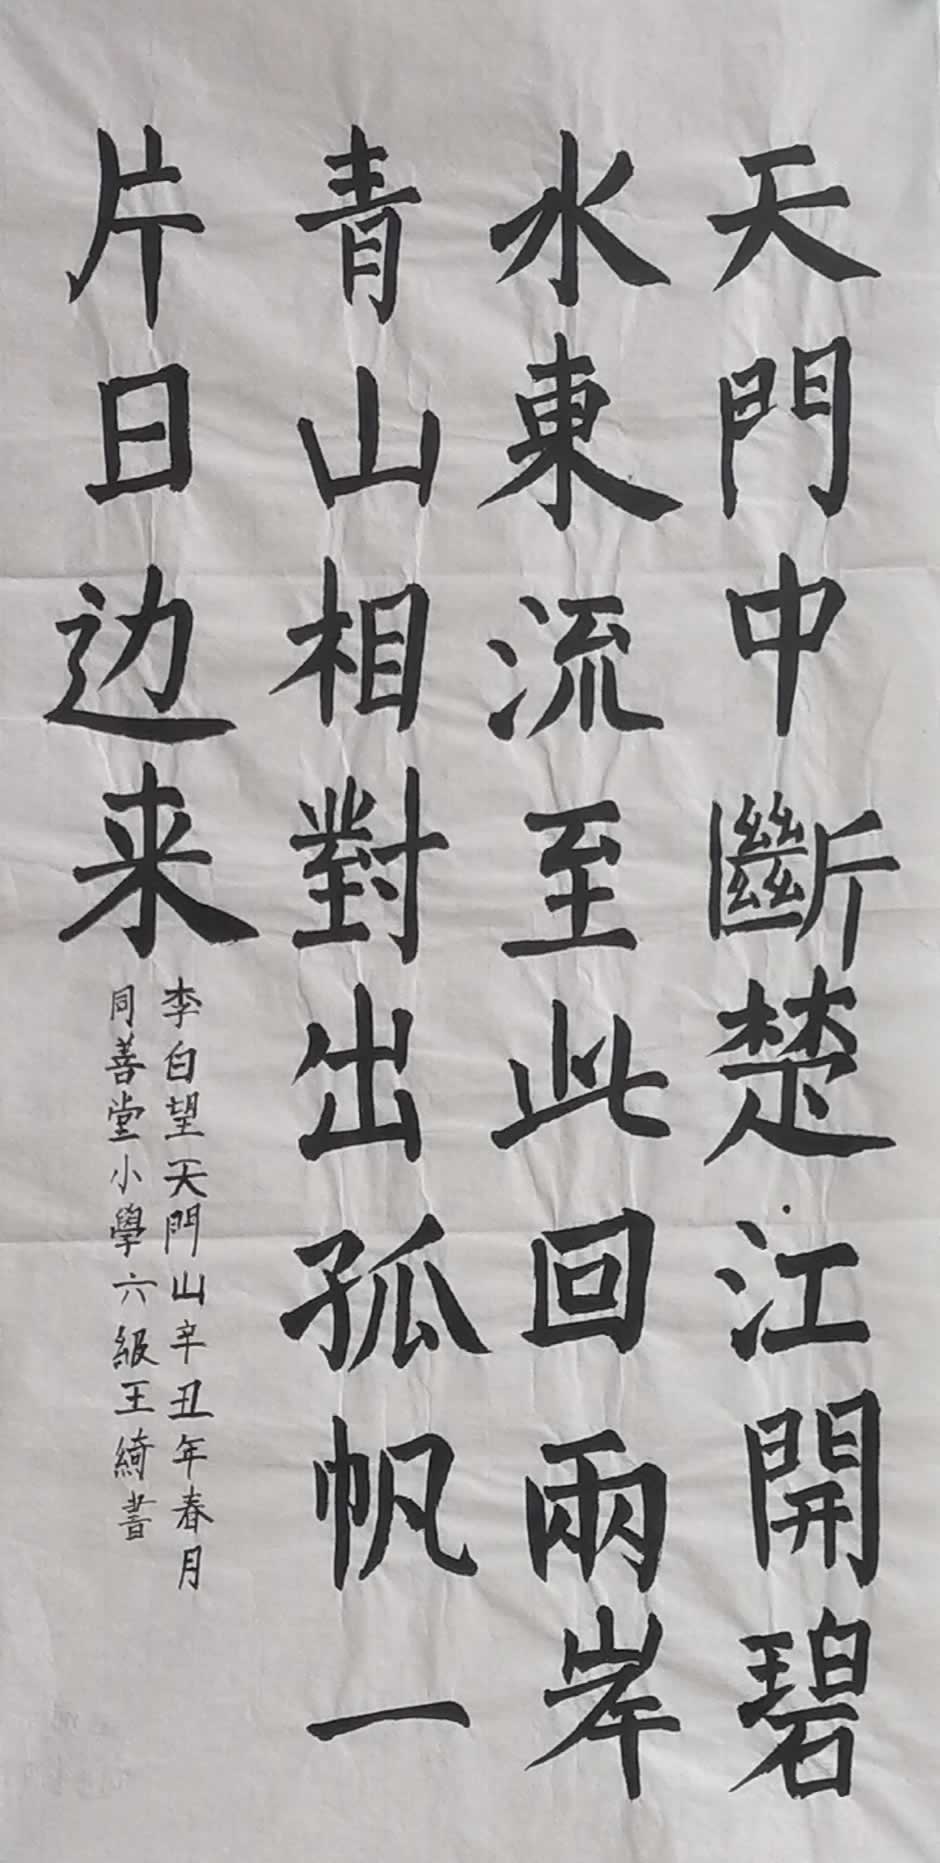 天門中斷楚江開碧
水東流至此回兩岸
青山相對出孤帆一
片日边来
李白望天門山辛丑年春月
同善堂小學六級王綺書